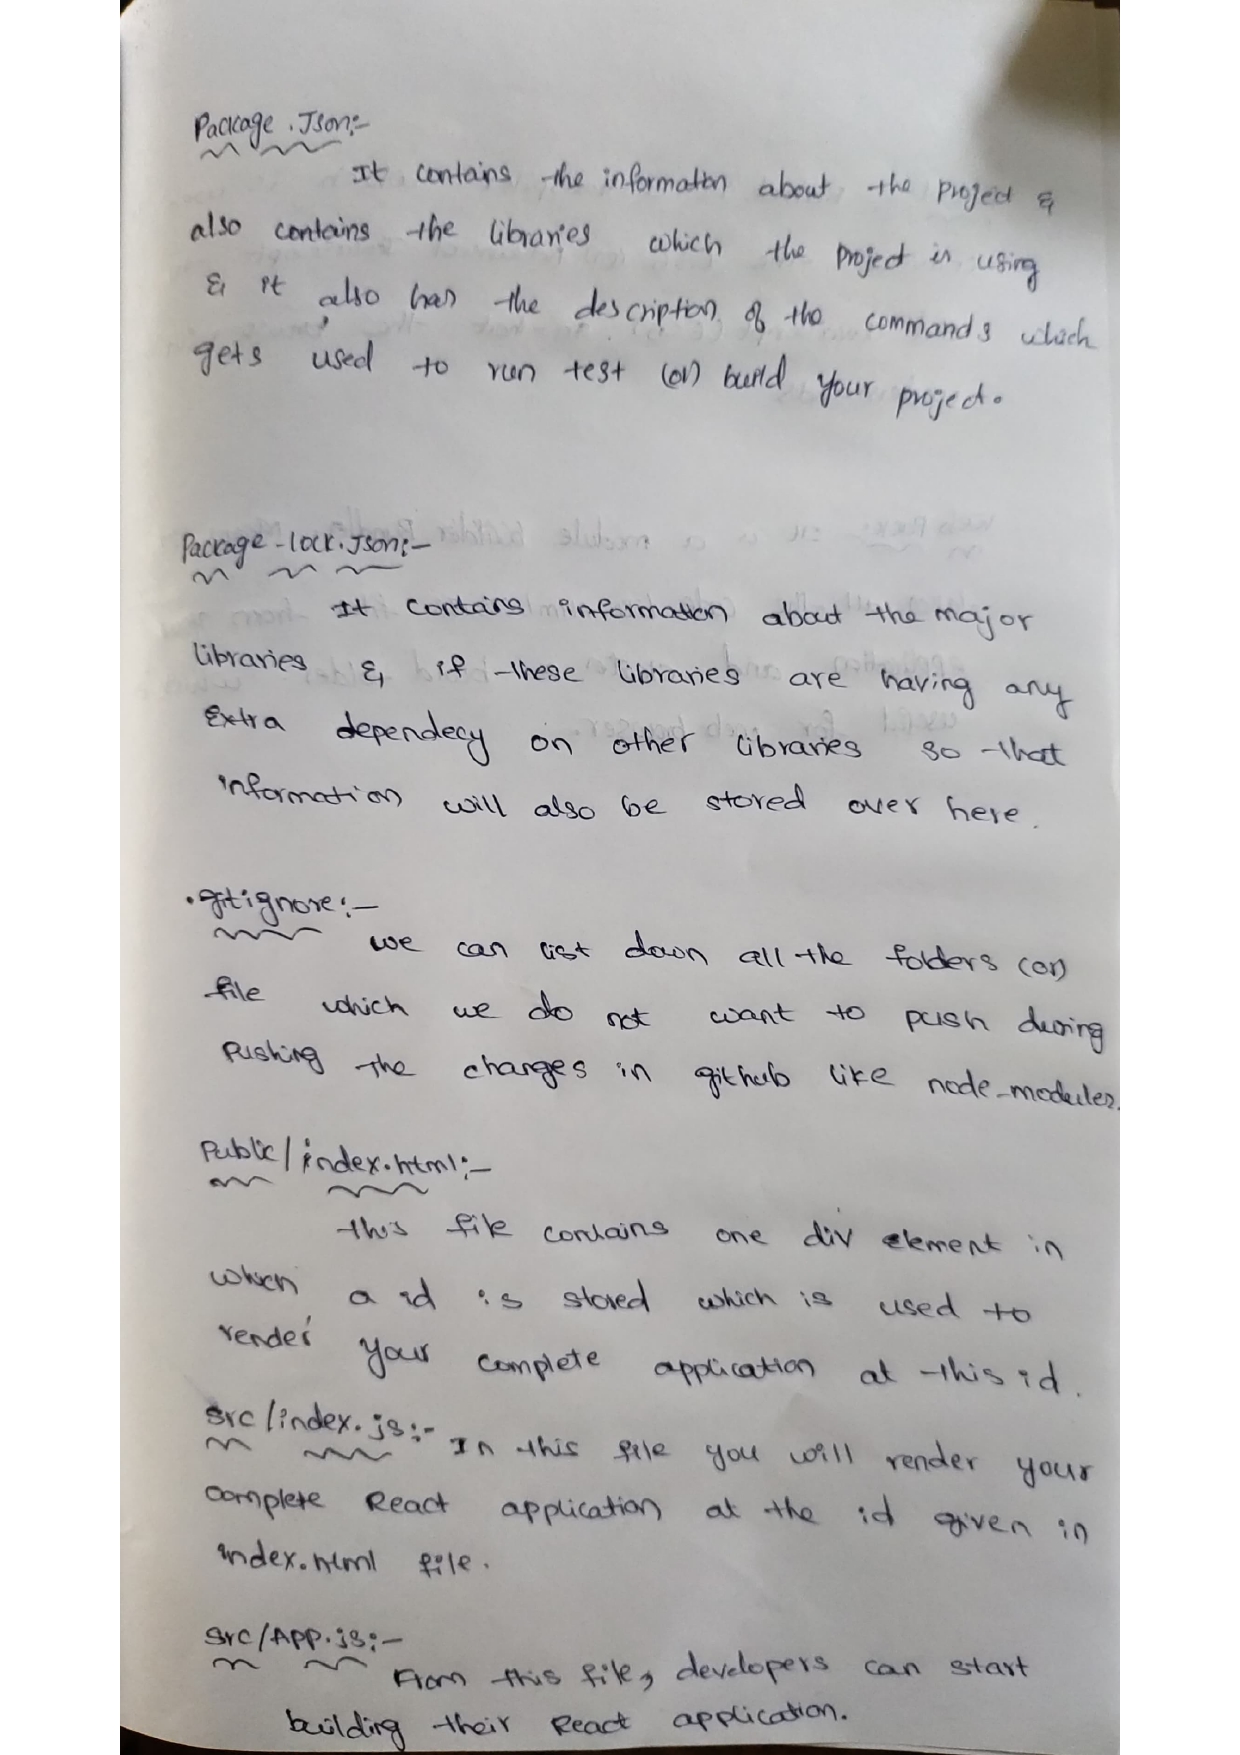 Package.Json:-
It contains the information about the project &
also contains the libraries which the project is using
& it also has the description of the commands which
gets used to run test (or) build your project.
Package-lock.Json:-
It contains information about the major
libraries & if these libraries are having any
Extra dependecy on other libraries so that
information will also be stored over here.
.gitignore:-
we can list down all the folders (or)
file which we do not want to push during
Pushing the changes in github like node_modules.
Public/index.html:-
this file contains one div element in
which a id is stored which is used to
render your complete application at this id.
src/index.js:- In this file you will render your
complete React application at the id given in
index.html file.
src/App.js:-
From this file, developers can start
building their React application.